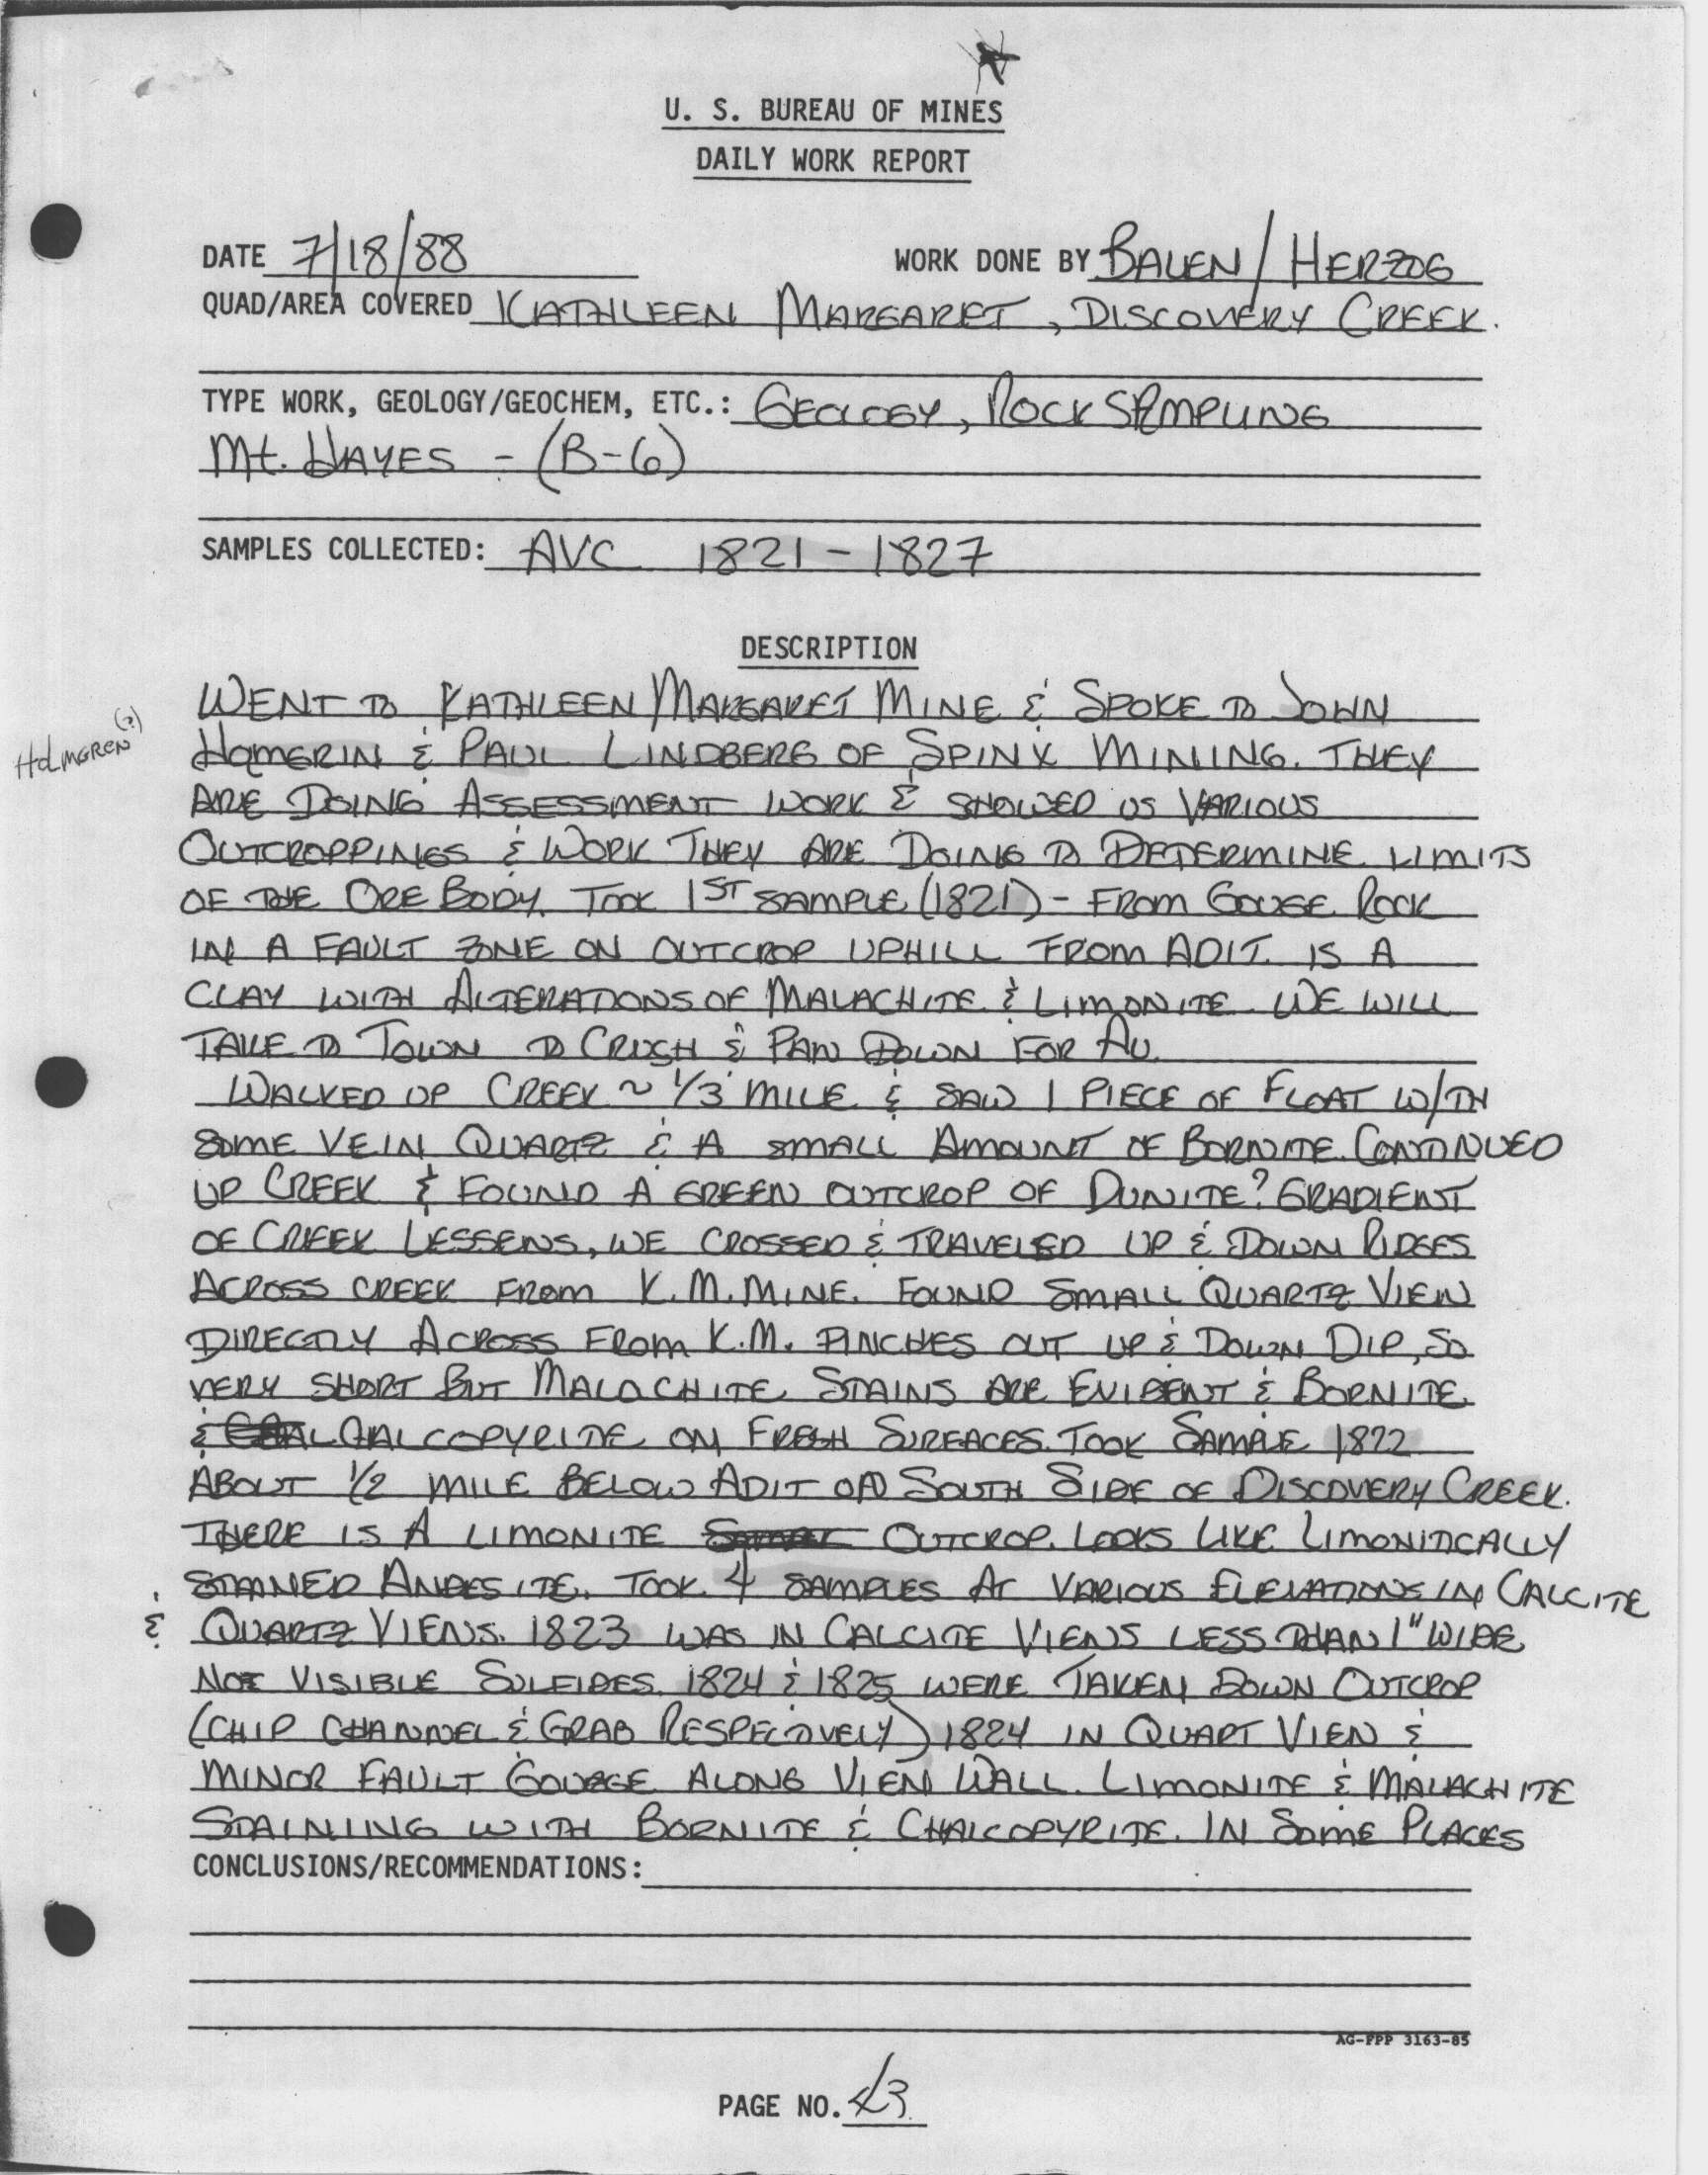 U. S. BUREAU OF MINES
DAILY WORK REPORT
DATE 7/18/88 WORK DONE BY BALEN/HERZOG
QUAD/AREA COVERED KATHLEEN MARGARET, DISCOVERY CREEK.
TYPE WORK, GEOLOGY/GEOCHEM, ETC.: GEOLOGY, ROCK SAMPLING
Mt. HAYES - (B-6)
SAMPLES COLLECTED: AVC 1821-1827
DESCRIPTION
WENT TO KATHLEEN MARGARET MINE & SPOKE TO JOHN
HOLMGREN (?)
HOMGRIN & PAUL LINDBERG OF SPINX MINING. THEY
ARE DOING ASSESSMENT WORK & SHOWED US VARIOUS
OUTCROPPINGS & WORK THEY ARE DOING TO DETERMINE LIMITS
OF THE ORE BODY. TOOK 1ST SAMPLE (1821) - FROM GOUGE ROCK
IN A FAULT ZONE ON OUTCROP UPHILL FROM ADIT. IS A
CLAY WITH ALTERATIONS OF MALACHITE & LIMONITE. WE WILL
TAKE TO TOWN TO CRUSH & PAN DOWN FOR AU.
WALKED UP CREEK ~ 1/3 MILE & SAW 1 PIECE OF FLOAT WITH
SOME VEIN QUARTZ & A SMALL AMOUNT OF BORNITE. CONTINUED
UP CREEK & FOUND A GREEN OUTCROP OF DUNITE? GRADIENT
OF CREEK LESSENS, WE CROSSED & TRAVELED UP & DOWN RIDGES
ACROSS CREEK FROM K.M. MINE. FOUND SMALL QUARTZ VIEN
DIRECTLY ACROSS FROM K.M. PINCHES OUT UP & DOWN DIP, SO
VERY SHORT BUT MALACHITE STAINS ARE EVIDENT & BORNITE
& CHALCOPYRITE ON FRESH SURFACES. TOOK SAMPLE 1822
ABOUT 1/2 MILE BELOW ADIT ON SOUTH SIDE OF DISCOVERY CREEK.
THERE IS A LIMONITE OUTCROP. LOOKS LIKE LIMONITICALLY
STAINED ANDESITE. TOOK 4 SAMPLES AT VARIOUS ELEVATIONS IN CALCITE
& QUARTZ VIENS. 1823 WAS IN CALCITE VIENS LESS THAN 1" WIDE
NOT VISIBLE SULFIDES. 1824 & 1825 WERE TAKEN DOWN OUTCROP
(CHIP CHANNEL & GRAB RESPECTIVELY) 1824 IN QUART VIEN &
MINOR FAULT GOUGE ALONG VIEN WALL. LIMONITE & MALACHITE
STAINING WITH BORNITE & CHALCOPYRITE. IN SOME PLACES
CONCLUSIONS/RECOMMENDATIONS:
AG-FPP 3163-85
PAGE NO. 43